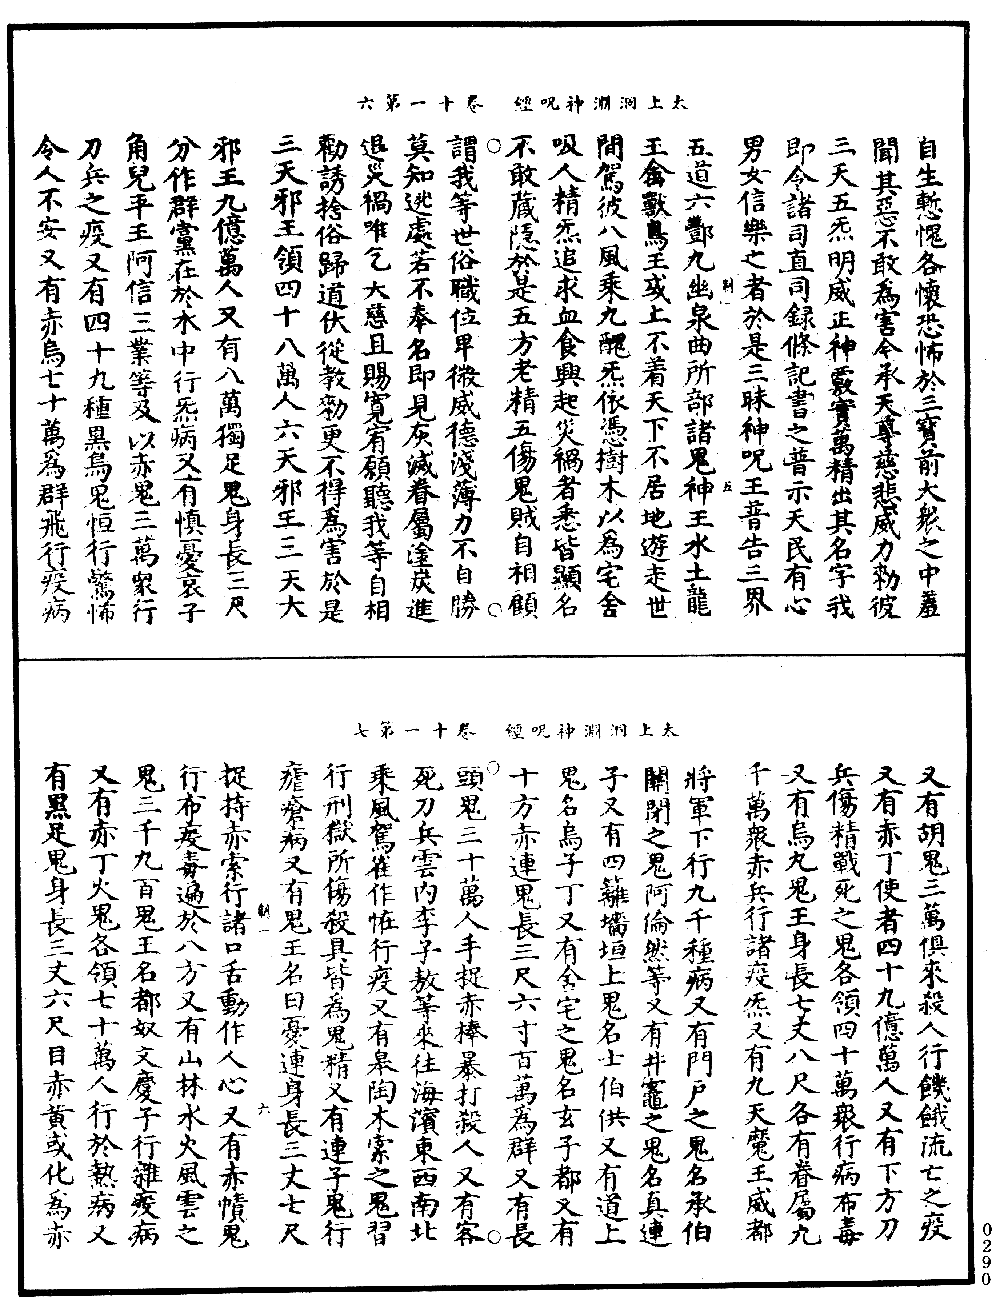 太上洞淵神呪經　卷十一第六
自生慙愧各懷恐怖於三寶前大衆之中羞
聞其惡不敢為害令承天尊慈悲威力勑彼
三天五炁明威正神覈實萬精出其名字我
即令諸司直司録條記書之普示天民有心
男女信樂之者於是三昧神呪王普告三界
五道六酆九幽泉曲所部諸鬼神王水土龍
王禽獸鳥王或上不着天下不居地遊走世
間駕彼八風乘九醜炁依憑樹木以為宅舍
吸人精炁追求血食興起災禍者悉皆顯名
不敢藏隱於是五方老精五傷鬼賊自相顧
謂我等世俗職位卑微威德淺薄力不自勝
莫知逃處若不奉名即見灰滅眷屬塗炭進
退災禍唯乞大慈且賜寬宥願聽我等自相
勸誘捨俗歸道伏從教勑更不得為害於是
三天邪王領四十八萬人六天邪王三天大
邪王九億萬人又有八萬獨足鬼身長三尺
分作群黨在於水中行炁病又有慎憂哀子
角兒平王阿信三業等及以赤鬼三萬衆行
刀兵之疫又有四十九種異鳥鬼恒行驚怖
令人不安又有赤烏七十萬為群飛行疫病
太上洞淵神呪經　卷十一第七
又有胡鬼三萬俱來殺人行饑餓流亡之疫
又有赤丁使者四十九億萬人又有下方刀
兵傷精戰死之鬼各領四十萬衆行病布毒
又有烏九鬼王身長七丈八尺各有眷屬九
千萬衆赤兵行諸疫炁又有九天魔王威都
將軍下行九千種病又有門戶之鬼名承伯
關閉之鬼阿倫然等又有井竈之鬼名真連
子又有四籬墻垣上鬼名士伯供又有道上
鬼名烏子丁又有舍宅之鬼名玄子都又有
十方赤連鬼長三尺六寸百萬為群又有長
頭鬼三十萬人手捉赤棒暴打殺人又有客
死刀兵雲内李子敖等來往海濱東西南北
乘風駕雀作恠行疫又有皋陶木索之鬼習
行刑獄所傷殺具皆為鬼精又有連子鬼行
瘧瘡病又有鬼王名曰憂連身長三丈七尺
捉持赤索行諸口舌動作人心又有赤幘鬼
行布疫毒遍於八方又有山林水火風雲之
鬼三千九百鬼王名都奴文慶子行雜疫病
又有赤丁火鬼各領七十萬人行於熱病又
有黑足鬼身長三丈六尺目赤黄或化為赤
0290